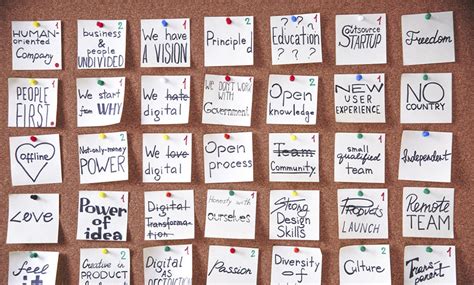 1
HUMAN-
oriented
Company
2
business
&
people
UNDIVIDED
We
have
A VISION
2
Principle
1
Education
? ? ?
?
1
Outsource
STARTUP
Freedom
PEOPLE
FIRST
We
start
from WHY
We hate
digital
WE DON'T WORK
WITH
Government
Open
knowledge
NEW
USER
EXPERIENCE
NO
COUNTRY
offline
2
Not-only-money
POWER
We love
digital
Open
process
1
Team
Community
small
qualified
team
Independent
Love
Power
of
idea
Digital
Transforma-
tion
Honesty with
ourselves
Strong
Design
Skills
Product
LAUNCH
Remote
TEAM
feel
it
Creative in
PRODUCT
Digital
AS
Passion
Diversity
Culture
Trans-
parent